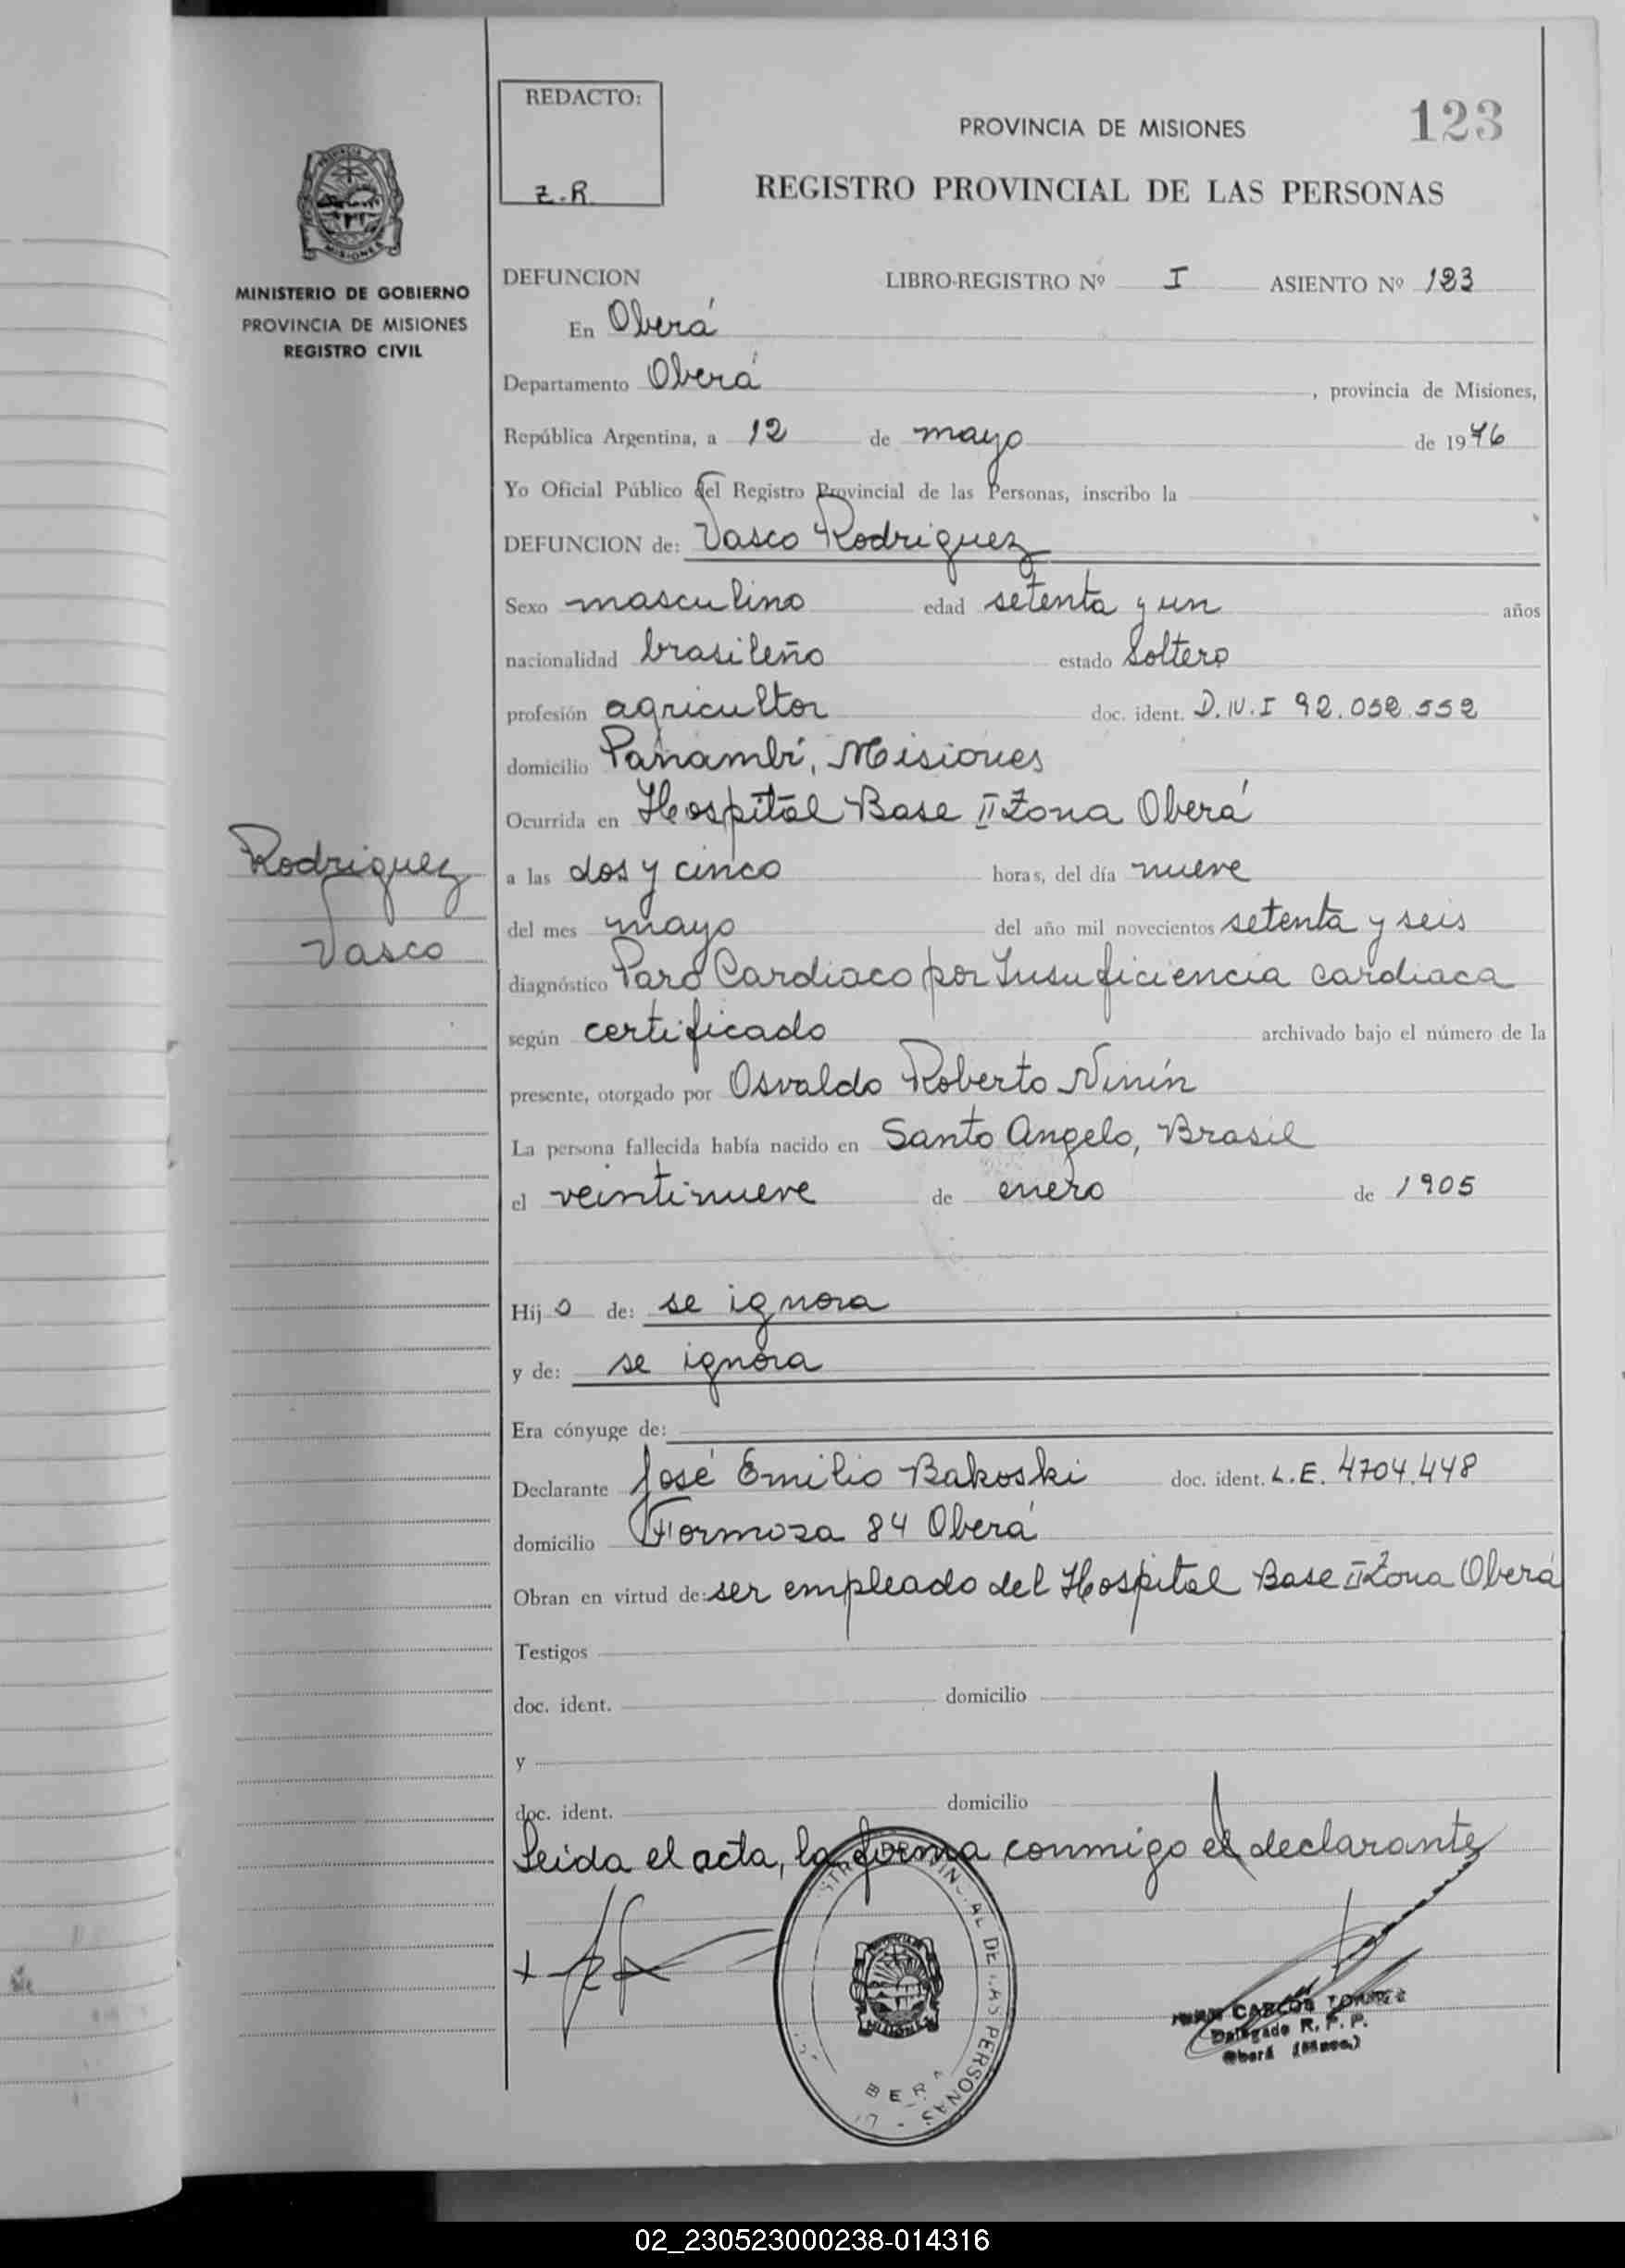 REDACTO:
Z.R
PROVINCIA DE MISIONES
123
REGISTRO PROVINCIAL DE LAS PERSONAS
MINISTERIO DE GOBIERNO
PROVINCIA DE MISIONES
REGISTRO CIVIL
DEFUNCION LIBRO-REGISTRO Nº I ASIENTO Nº 123
En Oberá
Departamento Oberá, provincia de Misiones,
República Argentina, a 12 de mayo de 1976
Yo Oficial Público del Registro Provincial de las Personas, inscribo la
DEFUNCION de: Vasco Rodriguez
Sexo masculino edad setenta y un años
nacionalidad brasileño estado Soltero
profesión agricultor doc. ident. D.N.I 92.052.552
domicilio Panambí, Misiones
Ocurrida en Hospital Base II Zona Oberá
Rodriguez
Vasco
a las dos y cinco horas, del día nueve
del mes mayo del año mil novecientos setenta y seis
diagnóstico Paro Cardiaco por Insuficiencia cardiaca
según certificado archivado bajo el número de la
presente, otorgado por Osvaldo Roberto Ninín
La persona fallecida había nacido en Santo Angelo, Brasil
el veintinueve de enero de 1905
Hijo de: se ignora
y de: se ignora
Era cónyuge de:
Declarante José Emilio Bakoski doc. ident. L.E. 4704.448
domicilio Formosa 84 Oberá
Obran en virtud de: ser empleado del Hospital Base II Zona Oberá
Testigos
doc. ident. domicilio
y
doc. ident. domicilio
Leida el acta, la firma conmigo el declarante
PROVINCIAL DE LAS PERSONAS
MISIONES
CARLOS TORRES
Delegado R. P. P.
Oberá (Mnes.)
02_230523000238-014316